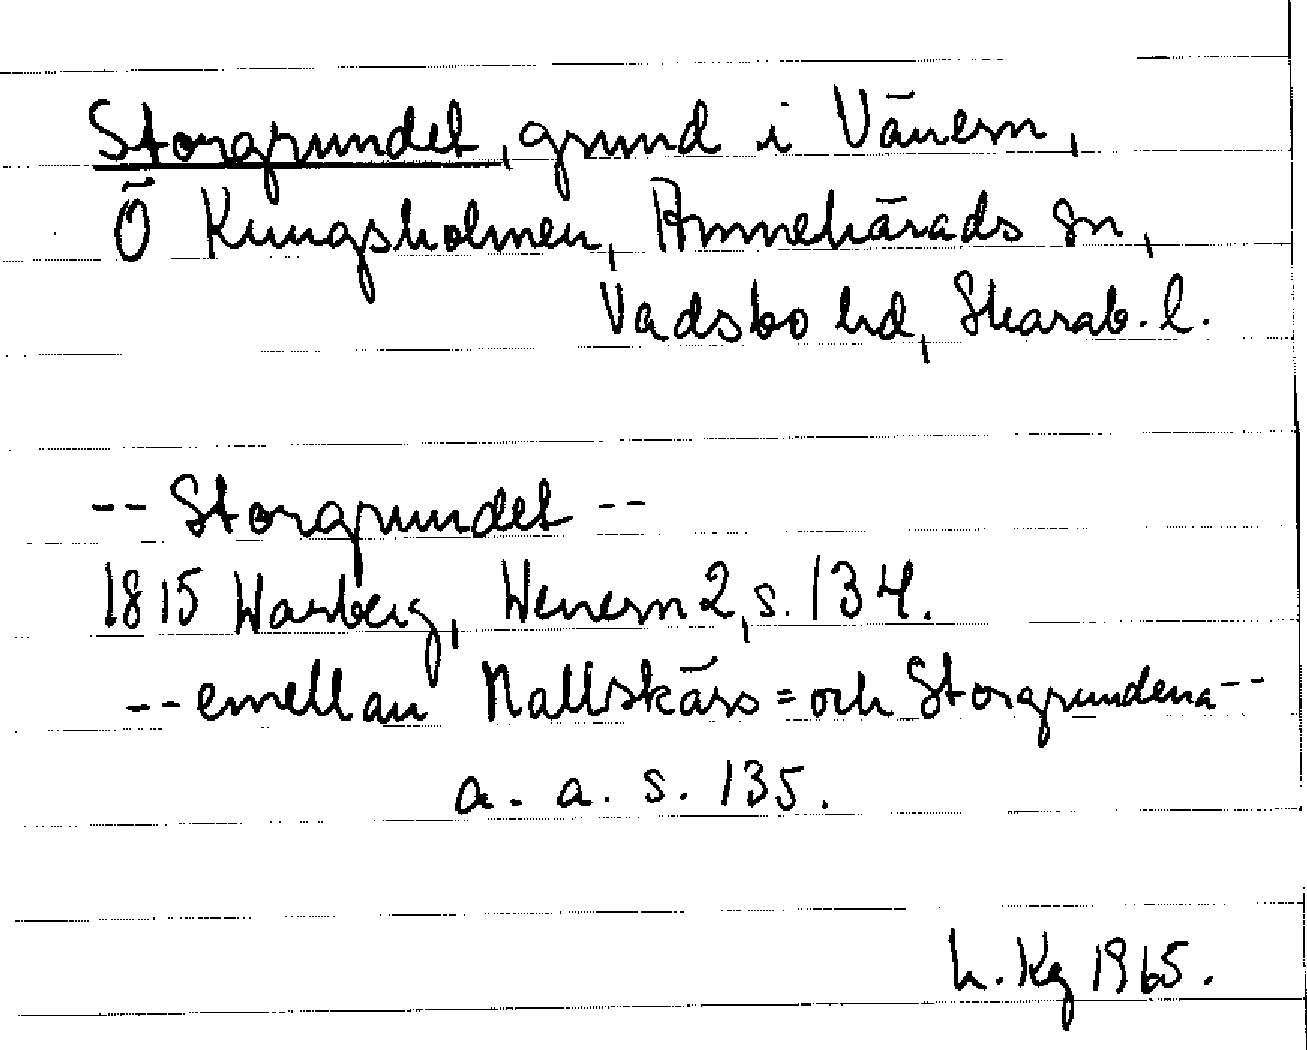 Storgrundet, grund i Vänern,
Ö Kungsholmen, Amnehärads sn,
Vadsbo hd, Skarab. l.
-- Storgrundet --
1815 Warberg, Wenern 2, s. 134.
-- emellan Nallskärs= och Storgrundena --
a. a. s. 135.
h. Kg 1965.